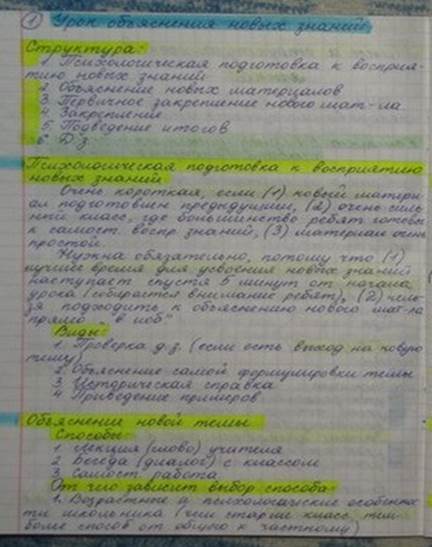 ① Урок объяснения новых знаний
Структура:
1. Психологическая подготовка к восприя-
тию новых знаний
2. Объяснение новых материалов
3. Первичное закрепление нового мат-ла
4. Закрепление
5. Подведение итогов
6. Д.З.
Психологическая подготовка к восприятию
новых знаний
Очень короткая, если (1) новый матери-
ал подготовлен предыдущим, (2) очень силь-
ный класс, где большинство ребят готовы
к самост. воспр. знаний, (3) материал очень
простой.
Нужна обязательно, потому что (1)
лучшее время для усвоения новых знаний
наступает спустя 5 минут от начала
урока (собирается внимание ребят), (2) нель-
зя подходить к объяснению нового мат-ла
прямо "в лоб"
Виды:
1. Проверка д.з. (если есть выход на новую
тему)
2. Объяснение самой формулировки темы
3. Историческая справка
4. Приведение примеров
Объяснение новой темы
Способы:
1. Лекция (слово) учителя
2. Беседа (диалог) с классом
3. Самост. работа
От чего зависит выбор способа:
1. Возрастные и психологические особеннос
ти школьника (чем старше класс, тем
более способ от общего к частному)